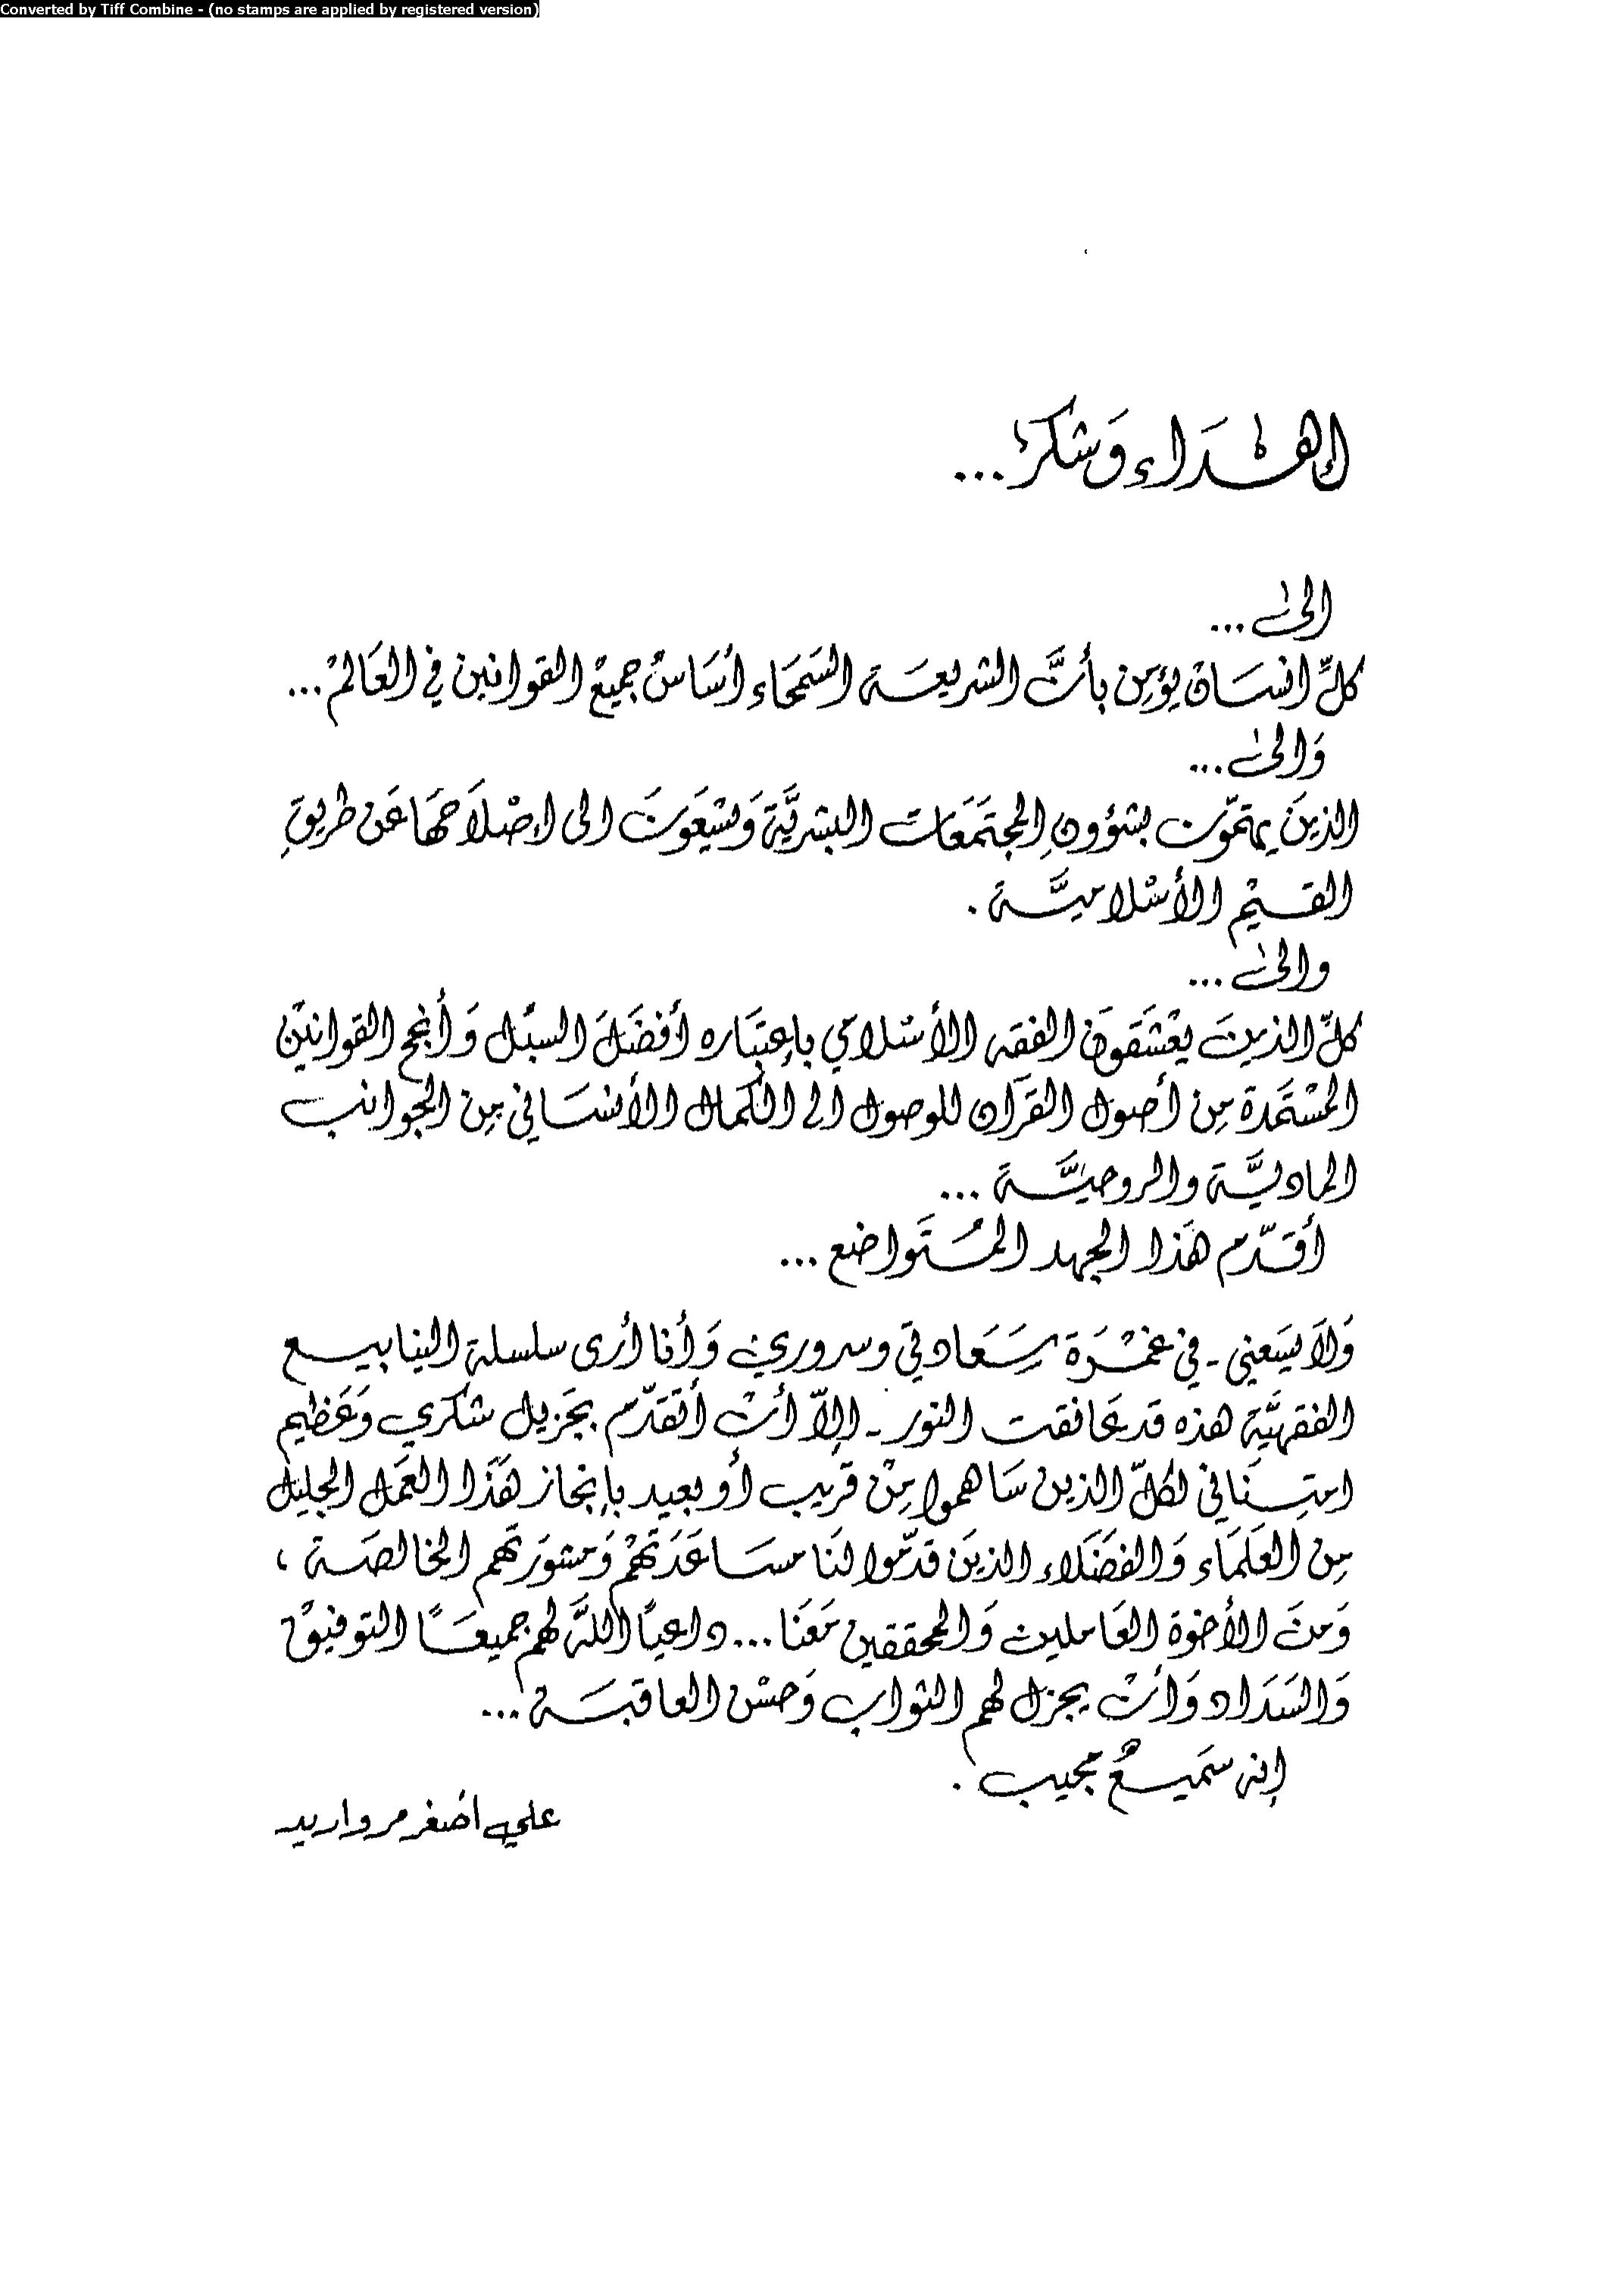 Converted by Tiff Combine - (no stamps are applied by registered version)
إهْداء وَشكرٌ...
الىٰ...
كلِّ انسَان يؤمِن بأنَّ الشريعَة السَمحَاء أسَاسُ جميعْ القوانين في العَالمْ...
وَالىٰ...
الذينَ يهتمّون بشؤونِ المجتَمَعَات البشريَّة وَيسْعَونَ الى إصْلاَحهَا عَن طريقِ
القيَمْ الأسْلاميَّة .
والىٰ...
كلِّ الذينَ يعْشَقونَ الفقه الأسْلامي بإعتبَاره أفضَلَ السبُل وَأنجح القوانيْن
المسْتمَدة مِن أصول القرآن للوصول الى الكمال الأنسَاني مِن الجوانب
الماديَّة والروحيَّة ...
أقدّم هَذا الجهد المُتَواضع ...
وَلاَ يسَعني - في غمْرَة سَعَادتي وسروري وَأنا أرى سلسلة الينابيع
الفقهيَّة هذه قد عَانقت النور - إلاّ أنْ أتقدّم بجَزيل شكري وَعَظيم
امتِنَاني لكلّ الذين سَاهموا مِنْ قريب أو بعيد بإنجاز هَذا العَمل الجليل
مِن العلَمَاء وَالفضَلاء الذينَ قدّموا لنَا مسَاعَدَتهُمْ وَمشوَرَتهم الخالصَة ،
وَمنَ الأخوة العَاملين وَالمحققين مَعَنا... داعيًا اللَّه لهم جميعًا التوفيقْ
وَالسَدَاد وَأنْ يجزل لهم الثواب وَحسْن العاقبَة ...
إنه سَميعٌ مجيب .
علي اصْغر مرواريد